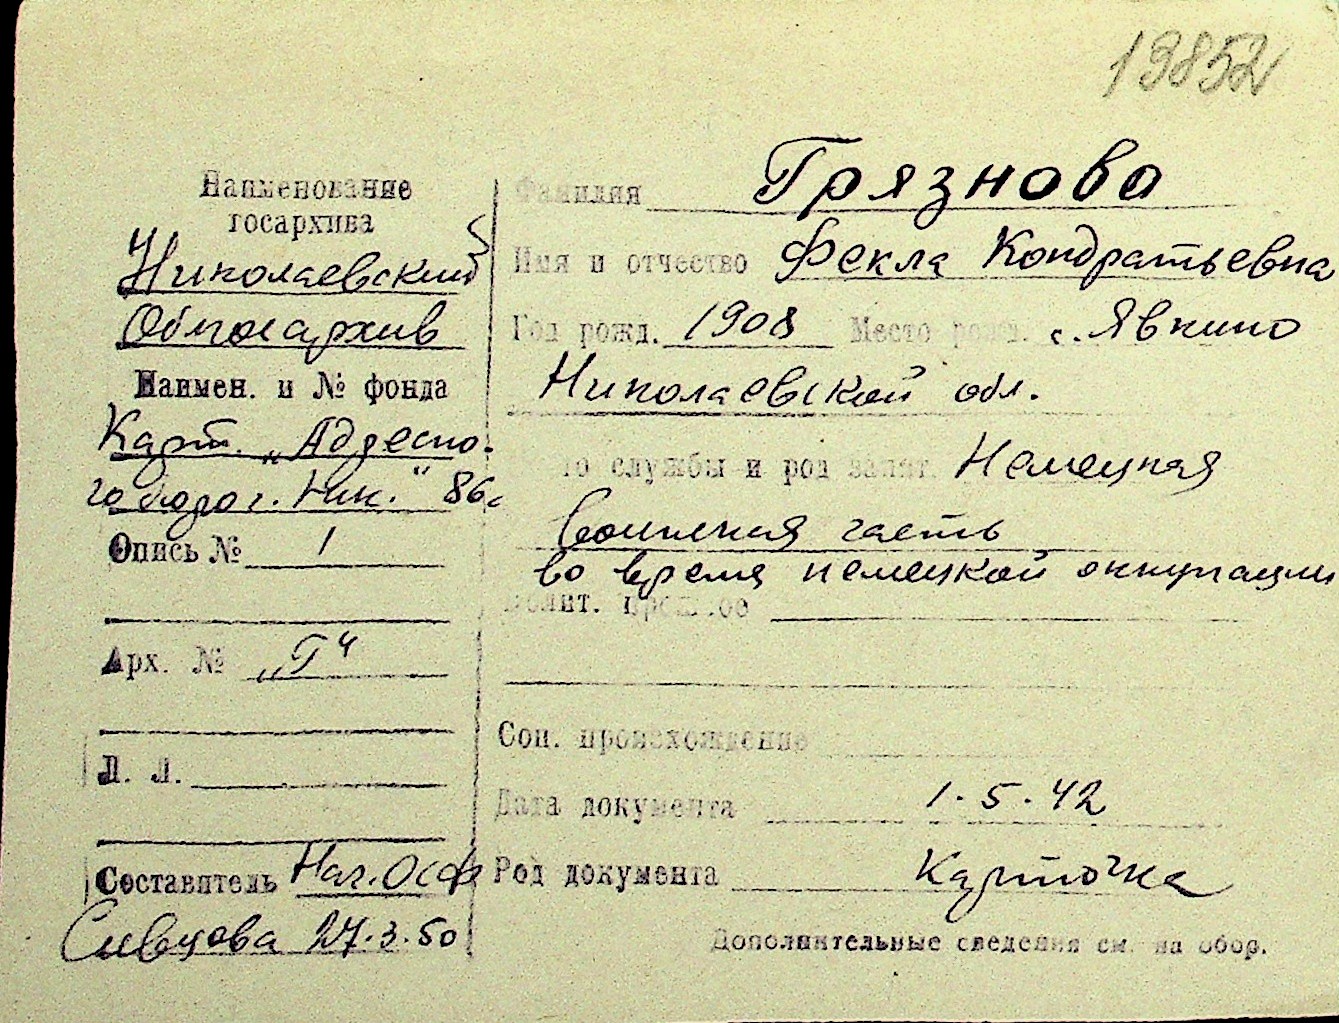 19852
Наименование
госархива
Николаевский
Облгосархив
Наимен. и № фонда
Карт. „Адресно-
го бюро г. Ник." 86с
Опись № 1
Арх. № „Г"
Л. Л.
Составитель Нач. Осф
Сивцова 27.3.50
Фамилия Грязнова
Имя и отчество Фекла Кондратьевна
Год рожд. 1908 Место рожд. с. Явкино
Николаевской обл.
то службы и род занят. Немецкая
воинская часть
во время немецкой оккупации
Полит. прошлое
Соц. происхождение
Дата документа 1.5.42
Род документа карточка
Дополнительные сведения см. на обор.